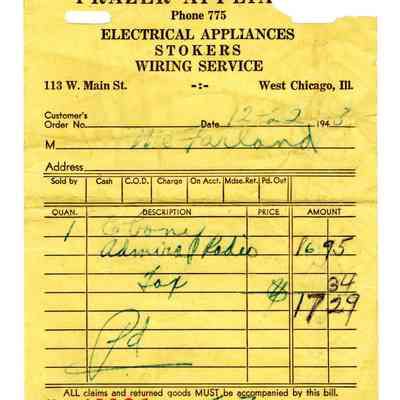 Phone 775
ELECTRICAL APPLIANCES
STOKERS
WIRING SERVICE
113 W. Main St. -:- West Chicago, Ill.
Customer's
Order No. Date 12-22 194 3
M McFarland
Address
Sold by Cash C.O.D. Charge On Acct. Mdse. Ret. Pd. Out
QUAN. DESCRIPTION PRICE AMOUNT
1 Ebony
Admiral Radio 16.95
Tax 34
$ 17 29
Pd
ALL claims and returned goods MUST be accompanied by this bill.